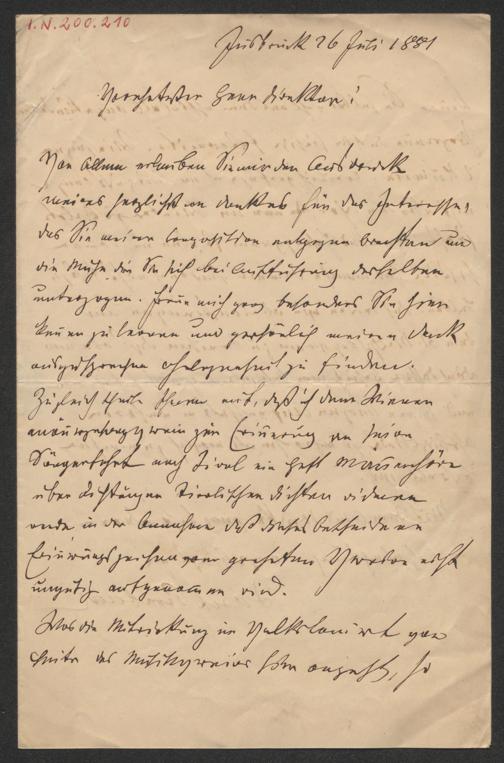 I.N. 200.210
Innsbruck 26 Juli 1881
Verehrtester Herr Direktor!
Vor Allem erlauben Sie mir den Ausdruck
meines herzlichsten Dankes für das Interesse,
das Sie meiner Composition entgegen brachten und
die Mühe die Sie sich bei Aufführung derselben
unterzogen. Freue mich ganz besonders Sie hier
kennen zu lernen und persönlich meinen Dank
auszusprechen Gelegenheit zu finden.
Zugleich theile Ihnen mit, daß ich dem Wiener
Männergesangverein zur Erinnerung an seine
Sängerfahrt nach Tirol ein Heft Männerchöre
über Dichtungen Tirolischer Dichter widmen
werde in der Annahme daß dieses bescheidene
Erinnerungszeichen vom geehrten Verein nicht
ungütig aufgenommen wird.
Was die Mitwirkung im Conzert von
Seite des Musikvereins hier angeht, so